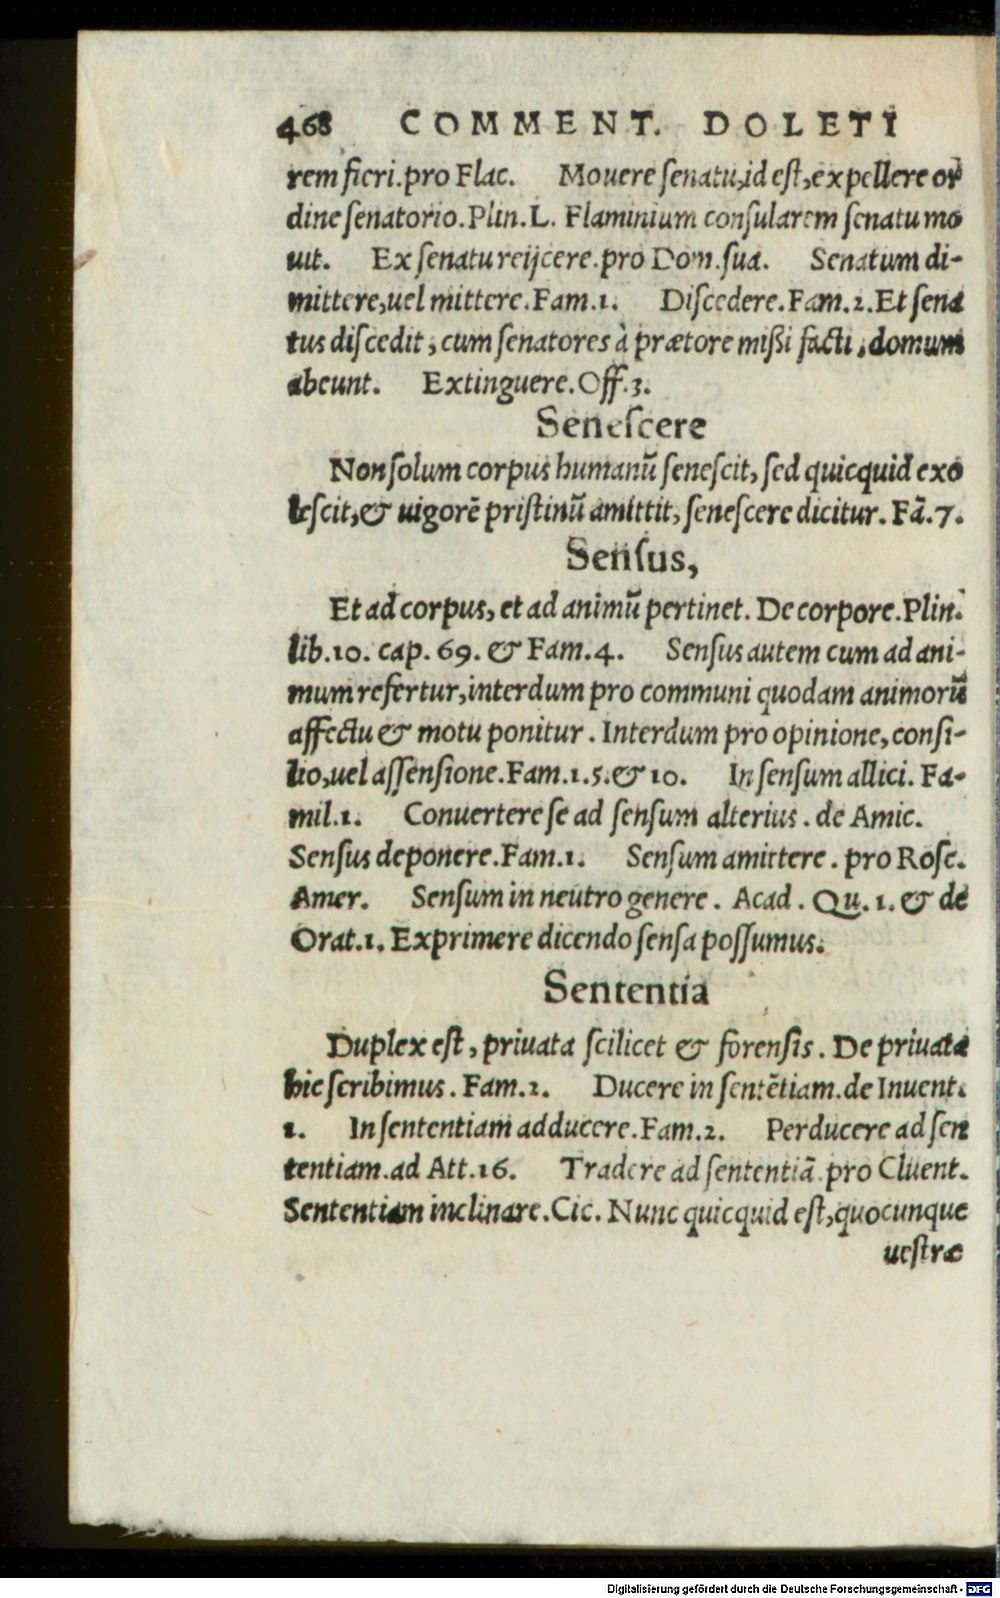 468 COMMENT. DOLETI
rem fieri.pro Flac. Mouere ſenatu,id eſt,expellere or
dine ſenatorio.Plin.L. Flaminium conſularem ſenatu mo
uit. Ex ſenatu reijcere.pro Dom.ſua. Senatum di-
mittere,uel mittere.Fam.1. Diſcedere.Fam.2.Et ſena
tus diſcedit, cum ſenatores à prætore mißi facti, domum
abeunt. Extinguere.Off.3.
Seneſcere
Non ſolum corpus humanũ ſeneſcit, ſed quicquid exo
leſcit,& uigorẽ priſtinũ amittit, ſeneſcere dicitur. Fã.7.
Senſus,
Et ad corpus, et ad animũ pertinet. De corpore.Plin.
lib.10. cap. 69. & Fam.4. Senſus autem cum ad ani-
mum refertur,interdum pro communi quodam animorũ
affectu & motu ponitur. Interdum pro opinione, conſi-
lio,uel aſſenſione.Fam.1.5.& 10. In ſenſum allici. Fa-
mil.1. Conuertere ſe ad ſenſum alterius. de Amic.
Senſus deponere.Fam.1. Senſum amittere. pro Roſc.
Amer. Senſum in neutro genere. Acad. Qu. 1. & de
Orat.1. Exprimere dicendo ſenſa poſſumus.
Sententia
Duplex eſt, priuata ſcilicet & forenſis. De priuata
hic ſcribimus. Fam.2. Ducere in ſentẽtiam.de Inuent.
1. In ſententiam adducere.Fam.2. Perducere ad ſen
tentiam.ad Att.16. Tradere ad ſententiã pro Cluent.
Sententiam inclinare.Cic. Nunc quicquid eſt,quocunque
ueſtræ
Digitalisierung gefördert durch die Deutsche Forschungsgemeinschaft - DFG